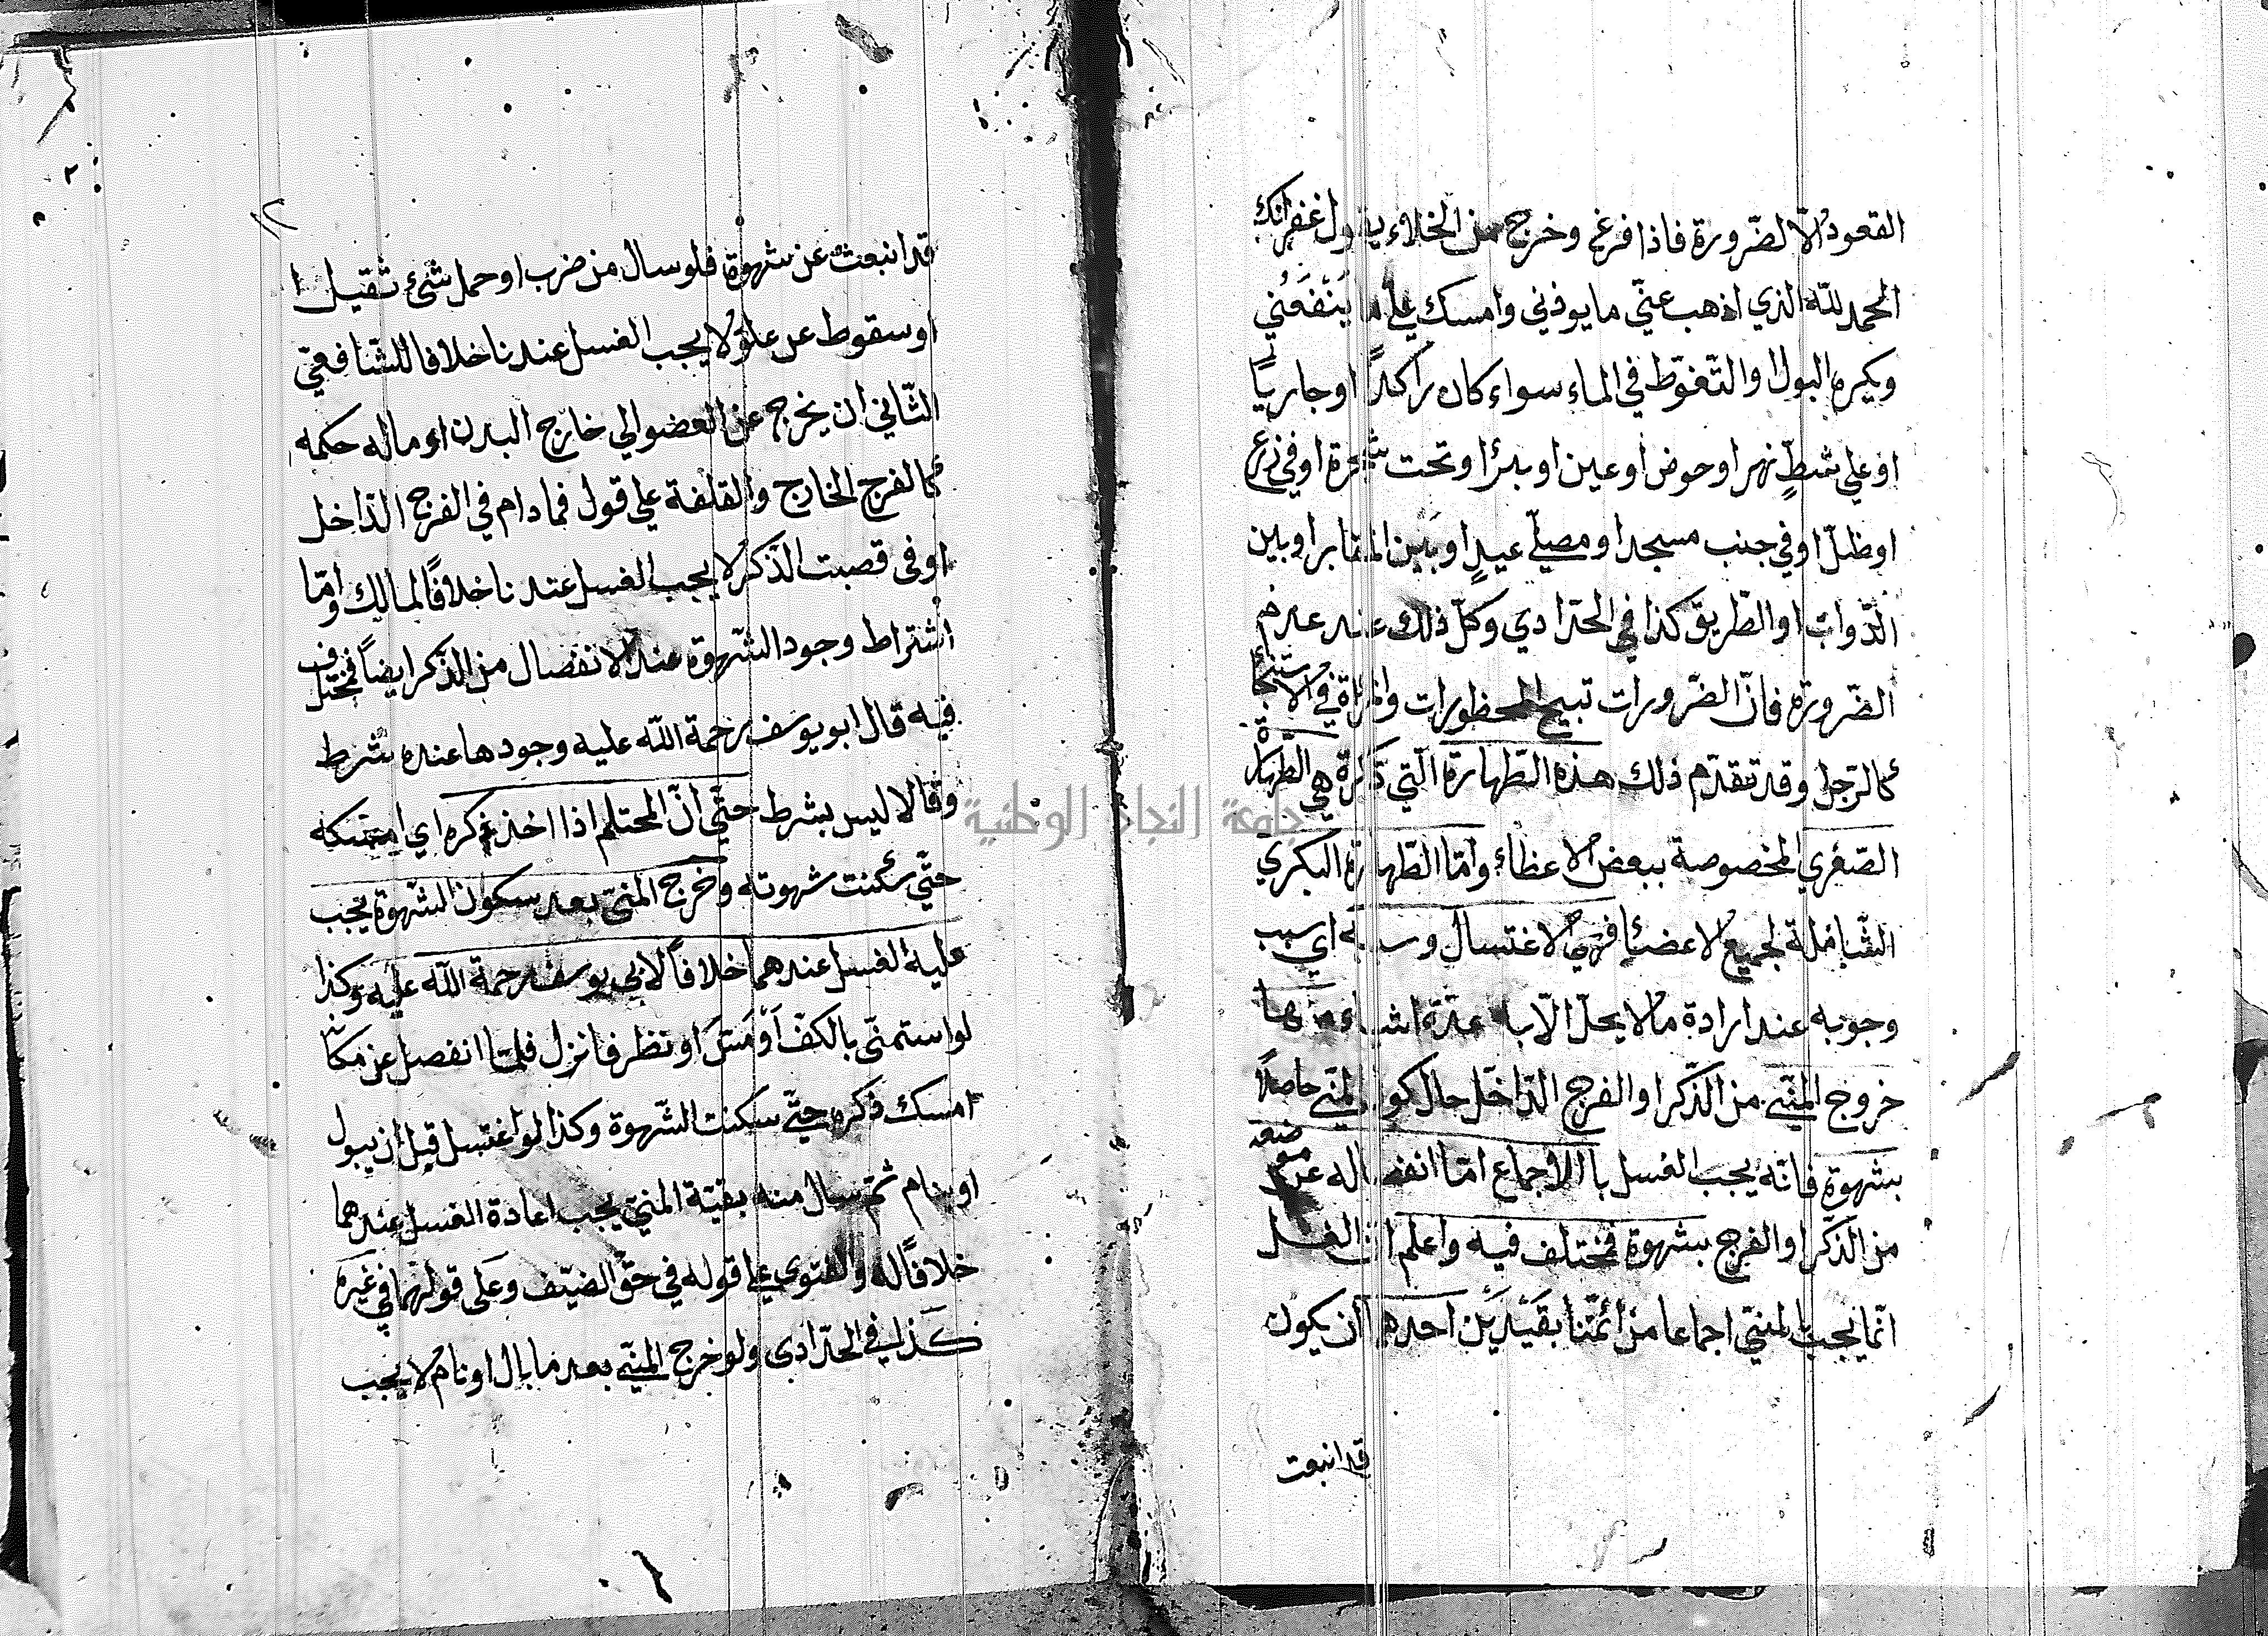 القعود الّا لضّرورة فاذا فرغ وخرج من الخلاء يقول غفرانك
الحمد للّه الذي اذهب عنّي ما يوذني وامسك علي ما يَنْفَعُني
ويكره البول والتّغوّط في الماء سواء كان راكداً او جارياً
او علي شطّ نهر او حوض او عين او بئر او تحت شجرة او في زرع
او ظلّ او في جنب مسجد او مصلّي عيدٍ او بين المقابر او بين
الدّواب او الطّريق كذا في الحدّادي وكلّ ذلك عند عدم
الضّرورة فانّ الضّرورات تبيح المحظورات والمرأة في الاستنجأ
كالرّجل وقد تقدّم ذلك هذه الطّهارة الّتي ذكرة هي الطّهارة
الصّغري المخصوصة ببعض الاعظاء وامّا الطّهارة البكري
الشّاملة لجميع الاعضاء فهي الاغتسال وسببه اي سبب
وجوبه عند ارادة ما لا يحلّ الّا به عدّة اشياء منها
خروج المنّي من الذّكر او الفرج الدّاخل حال كون المنّي حاصلاً
بشهوة فانّه يجب الغسل بالاجماع امّا انفصاله عن موضعه
من الذّكر او الفرج بشهوة فمختلف فيه واعلم انّ الغسل
انّما يجب بالمنّي اجماعا من ائمّتنا بقَيْدَيْن احدهما ان يكون
قد انبعت
١٢
قد انبعث عن شهوة فلو سال من ضرب او حمل شئ ثقيل ا
او سقوط عن علوّ لا يجب الغسل عندنا خلافا للشّافعيّ
الثّاني ان يخرج عن العضو الي خارج البدن او ماله حكمه
كالفرج الخارج والقلفة علي قول فما دام في الفرج الدّاخل
او في قصبت الذّكر لا يجب الغسل عندنا خلافاً لمالك وامّا
اشتراط وجود الشّهوة عند الانفصال من الذّكر ايضاً فمختلف
فيه قال ابو يوسف رحمة اللّه عليه وجودها عنده شرط
وقالا ليس بشرط حتّي انّ المحتلم اذا اخذ ذكره اي امسكه
حتّي سكنت شهوته وخرج المنّي بعد سكون الشّهوة يجب
عليه الغسل عندهما خلافاً لابي يوسف رحمة اللّه عليه وكذا
لو استمنّي بالكفّ اَوْ مَسَّ او نظر فانزل فلمّا انفصل عن مكانه
امسك ذكره حتّي سكنت الشّهوة وكذا لو اغتسل قبل ان يبول
او ينام ثمّ سال منه بقيّة المنّي يجب اعادة الغسل عندهما
خلافاً له والفتوي علي قوله في حقّ الضّيف وعلي قولهما في غيره
كذا في الحدّادي ولو خرج المنّي بعد ما بال او نام لا يجب
جامعة النجاح الوطنية